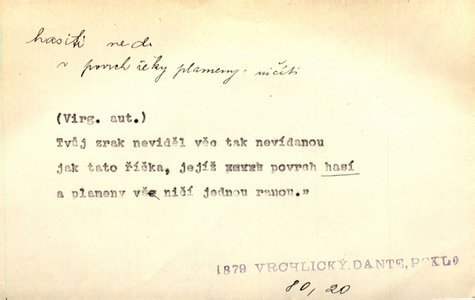 hasiti ned.
v povrch říčky plameny - ničiti
(Virg. aut.)
Tvůj zrak neviděl věc tak nevídanou
jak tato říčka, jejíž povrch hasí
a plameny vše ničí jednou ranou.»
1879 VRCHLICKÝ, DANTE, PEKLO
80, 20